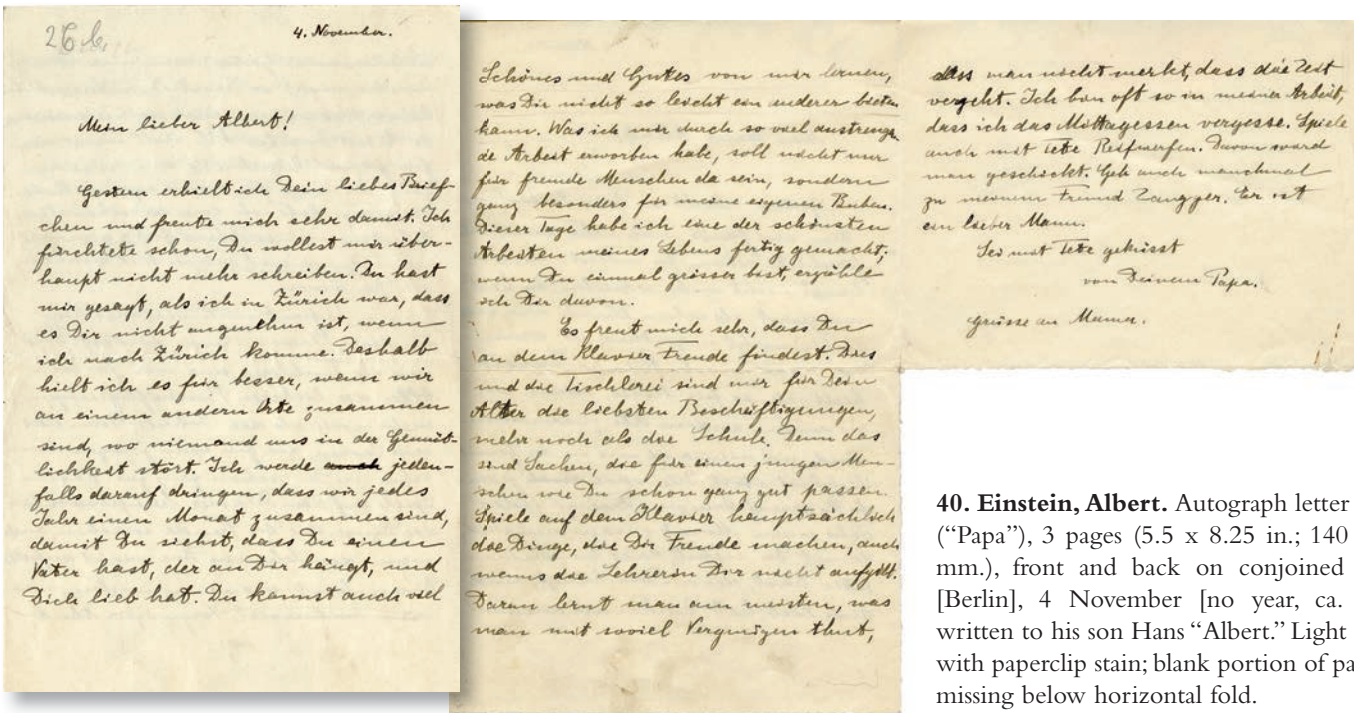 26 b.
4. November.
Mein lieber Albert!
Gestern erhielt ich Dein liebes Brief-
chen und freute mich sehr damit. Ich
fürchtete schon, Du wollest mir über-
haupt nicht mehr schreiben. Du hast
mir gesagt, als ich in Zürich war, dass
es Dir nicht angenehm ist, wenn
ich nach Zürich komme. Deshalb
hielt ich es für besser, wenn wir
an einem andern Orte zusammen
sind, wo niemand uns in der Gemüt-
lichkeit stört. Ich werde auch jeden-
falls darauf dringen, dass wir jedes
Jahr einen Monat zusammen sind,
damit Du siehst, dass Du einen
Vater hast, der an Dir hängt, und
Dich lieb hat. Du kannst auch viel
Schönes und Gutes von mir lernen,
was Dir nicht so leicht ein anderer bieten
kann. Was ich mir durch so viel anstrengen
de Arbeit erworben habe, soll nicht nur
für fremde Menschen da sein, sondern
ganz besonders für meine eigenen Buben.
Dieser Tage habe ich eine der schönsten
Arbeiten meines Lebens fertig gemacht;
wenn Du einmal grösser bist, erzähle
ich Dir davon.
Es freut mich sehr, dass Du
an dem Klavier Freude findest. Dies
und die Tischlerei sind mir für Dein
Alter die liebsten Beschäftigungen,
mehr noch als die Schule. Denn das
sind Sachen, die für einen jungen Men-
schen wie Du schon ganz gut passen.
Spiele auf dem Klavier hauptsächlich
die Dinge, die Dir Freude machen, auch
wenns die Lehrerin Dir nicht aufgibt.
Daran lernt man am meisten, was
man mit soviel Vergnügen thut,
dass man nicht merkt, dass die Zeit
vergeht. Ich bin oft so in meiner Arbeit,
dass ich das Mittagessen vergesse. Spiele
auch mit Tete Reifwerfen. Davon ward
man geschickt. Geh auch manchmal
zu meinem Freund Zangger. Er ist
ein lieber Mann.
Sei mit Tete geküsst
von Deinem Papa.
Grüsse an Mama.
40. Einstein, Albert. Autograph letter
(“Papa”), 3 pages (5.5 x 8.25 in.; 140
mm.), front and back on conjoined
[Berlin], 4 November [no year, ca.
written to his son Hans “Albert.” Light
with paperclip stain; blank portion of pa
missing below horizontal fold.